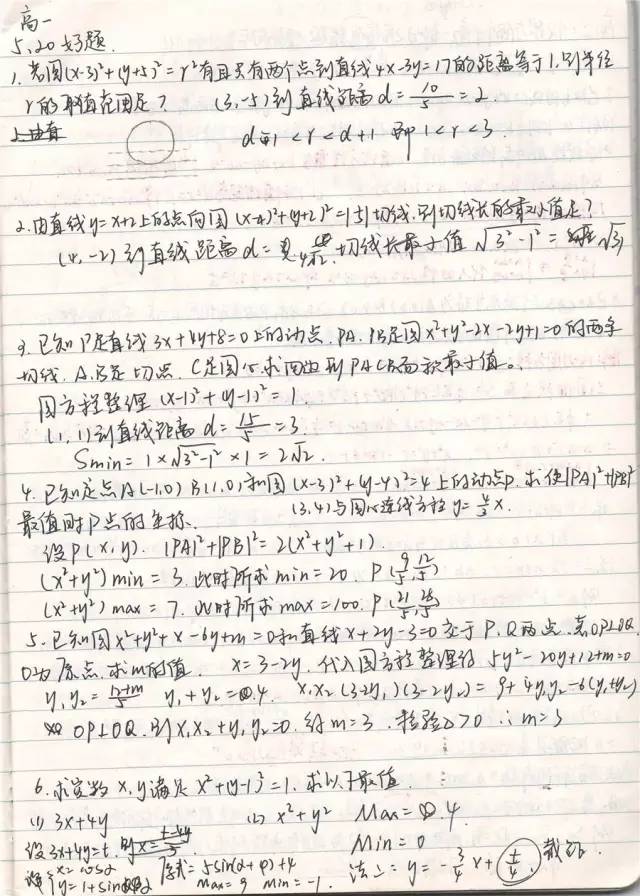 高一
5.20 好题.
1. 若圆(x-3)²+(y+5)²=r²有且只有两个点到直线4x-3y=17的距离等于1.则半径
r的取值范围是? (3,-5)到直线距离d=10/5=2.
d-1<r<d+1 即1<r<3.
2.由直线y=x+2上的点向圆(x-4)²+(y+2)²=1引切线.则切线长的最小值是?
(4,-2)到直线距离d= 切线长最小值
3. 已知P是直线3x+4y+8=0上的动点. PA.PB是圆x²+y²-2x-2y+1=0的两条
切线. A.B是切点. C是圆心.求四边形PACB面积最小值。
圆方程整理 (x-1)²+(y-1)²=1
(1,1)到直线距离d=15/5=3.
Smin=1×√3²-1²×1=2√2.
4. 已知定点A(-1,0) B(1,0)和圆(x-3)²+(y-4)²=4上的动点P. 求使|PA|²+|PB|²
最值时P点的坐标. (3,4)与圆心连线方程y=4/3x.
设P(x,y). |PA|²+|PB|²=2(x²+y²+1).
(x²+y²)min=3.此时所求min=20. P(9/5,12/5)
(x²+y²)max=7. 此时所求max=100. P(21/5,28/5)
5. 已知圆x²+y²+x-6y+m=0和直线x+2y-3=0交于P.Q两点.若OP⊥OQ
O为原点.求m的值. x=3-2y.代入圆方程整理得 5y²-20y+12+m=0
y₁y₂=12+m/5 y₁+y₂=4. x₁x₂(3-2y₁)(3-2y₂)=9+4y₁y₂-6(y₁+y₂)
OP⊥OQ.则x₁x₂+y₁y₂=0.得m=3. 检验△>0 ∴m=3
6.求实数x,y满足x²+(y-1)²=1.求以下最值.
(1) 3x+4y (2) x²+y² Max=4.
设3x+4y=t. Min=0
设{x=cosα 原式=5sin(α+φ)+4 法二:y=-3/4x+t/4 截距.
{y=1+sinα Max=9 min=-1.